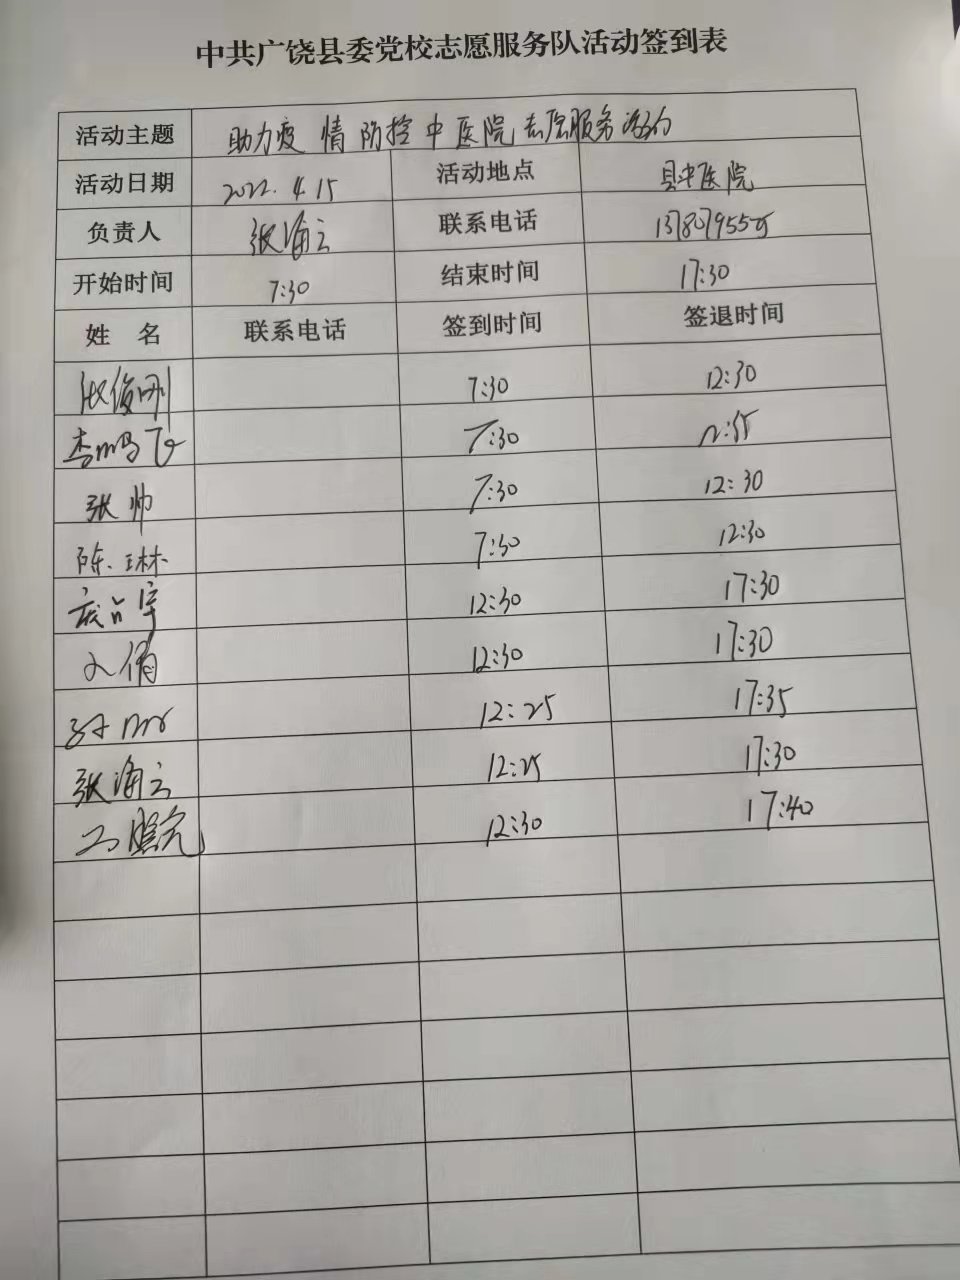 中共广饶县委党校志愿服务队活动签到表
活动主题 助力疫情防控中医院志愿服务活动
活动日期 2022.4.15 活动地点 县中医院
负责人 张海云 联系电话
开始时间 7:30 结束时间 17:30
姓 名 联系电话 签到时间 签退时间
7:30 12:30
李鹏飞 7:30 12:35
张帅 7:30 12:30
陈琳 7:30 12:30
12:30 17:30
12:30 17:30
12:25 17:35
张海云 12:25 17:30
12:30 17:40